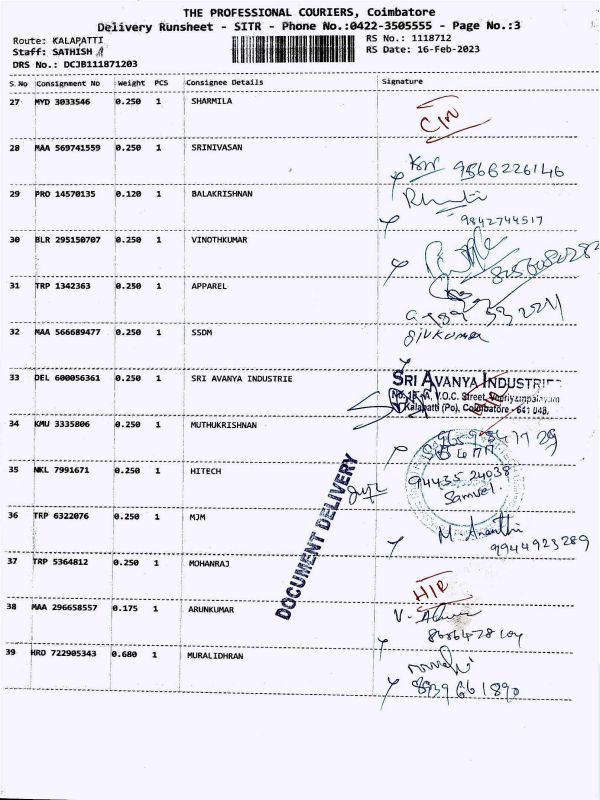 THE PROFESSIONAL COURIERS, Coimbatore
Delivery Runsheet - SITR - Phone No.:0422-3505555 - Page No.:3
Route: KALAPATTI
RS No.: 1118712
Staff: SATHISH
RS Date: 16-Feb-2023
DRS No.: DCJB111871203
S.No Consignment No Weight PCS Consignee Details Signature
27 MYD 3033546 0.250 1 SHARMILA
28 MAA 569741559 0.250 1 SRINIVASAN
9566226146
29 PRO 14570135 0.120 1 BALAKRISHNAN
9842744517
30 BLR 295150707 0.250 1 VINOTHKUMAR
31 TRP 1342363 0.250 1 APPAREL
32 MAA 566689477 0.250 1 SSDM
Sivkumar
33 DEL 600056361 0.250 1 SRI AVANYA INDUSTRIE
SRI AVANYA INDUSTRIES
V.O.C. Street,
Kalapatti (Po), Coimbatore - 641 048.
34 KMU 3335806 0.250 1 MUTHUKRISHNAN
35 NKL 7991671 0.250 1 HITECH
94435 24038
Samuel.
DOCUMENT DELIVERY
36 TRP 6322076 0.250 1 MJM
M. Ananthi
9944923289
37 TRP 5364812 0.250 1 MOHANRAJ
38 MAA 296658557 0.175 1 ARUNKUMAR
39 HRD 722905343 0.680 1 MURALIDHRAN
8939661890